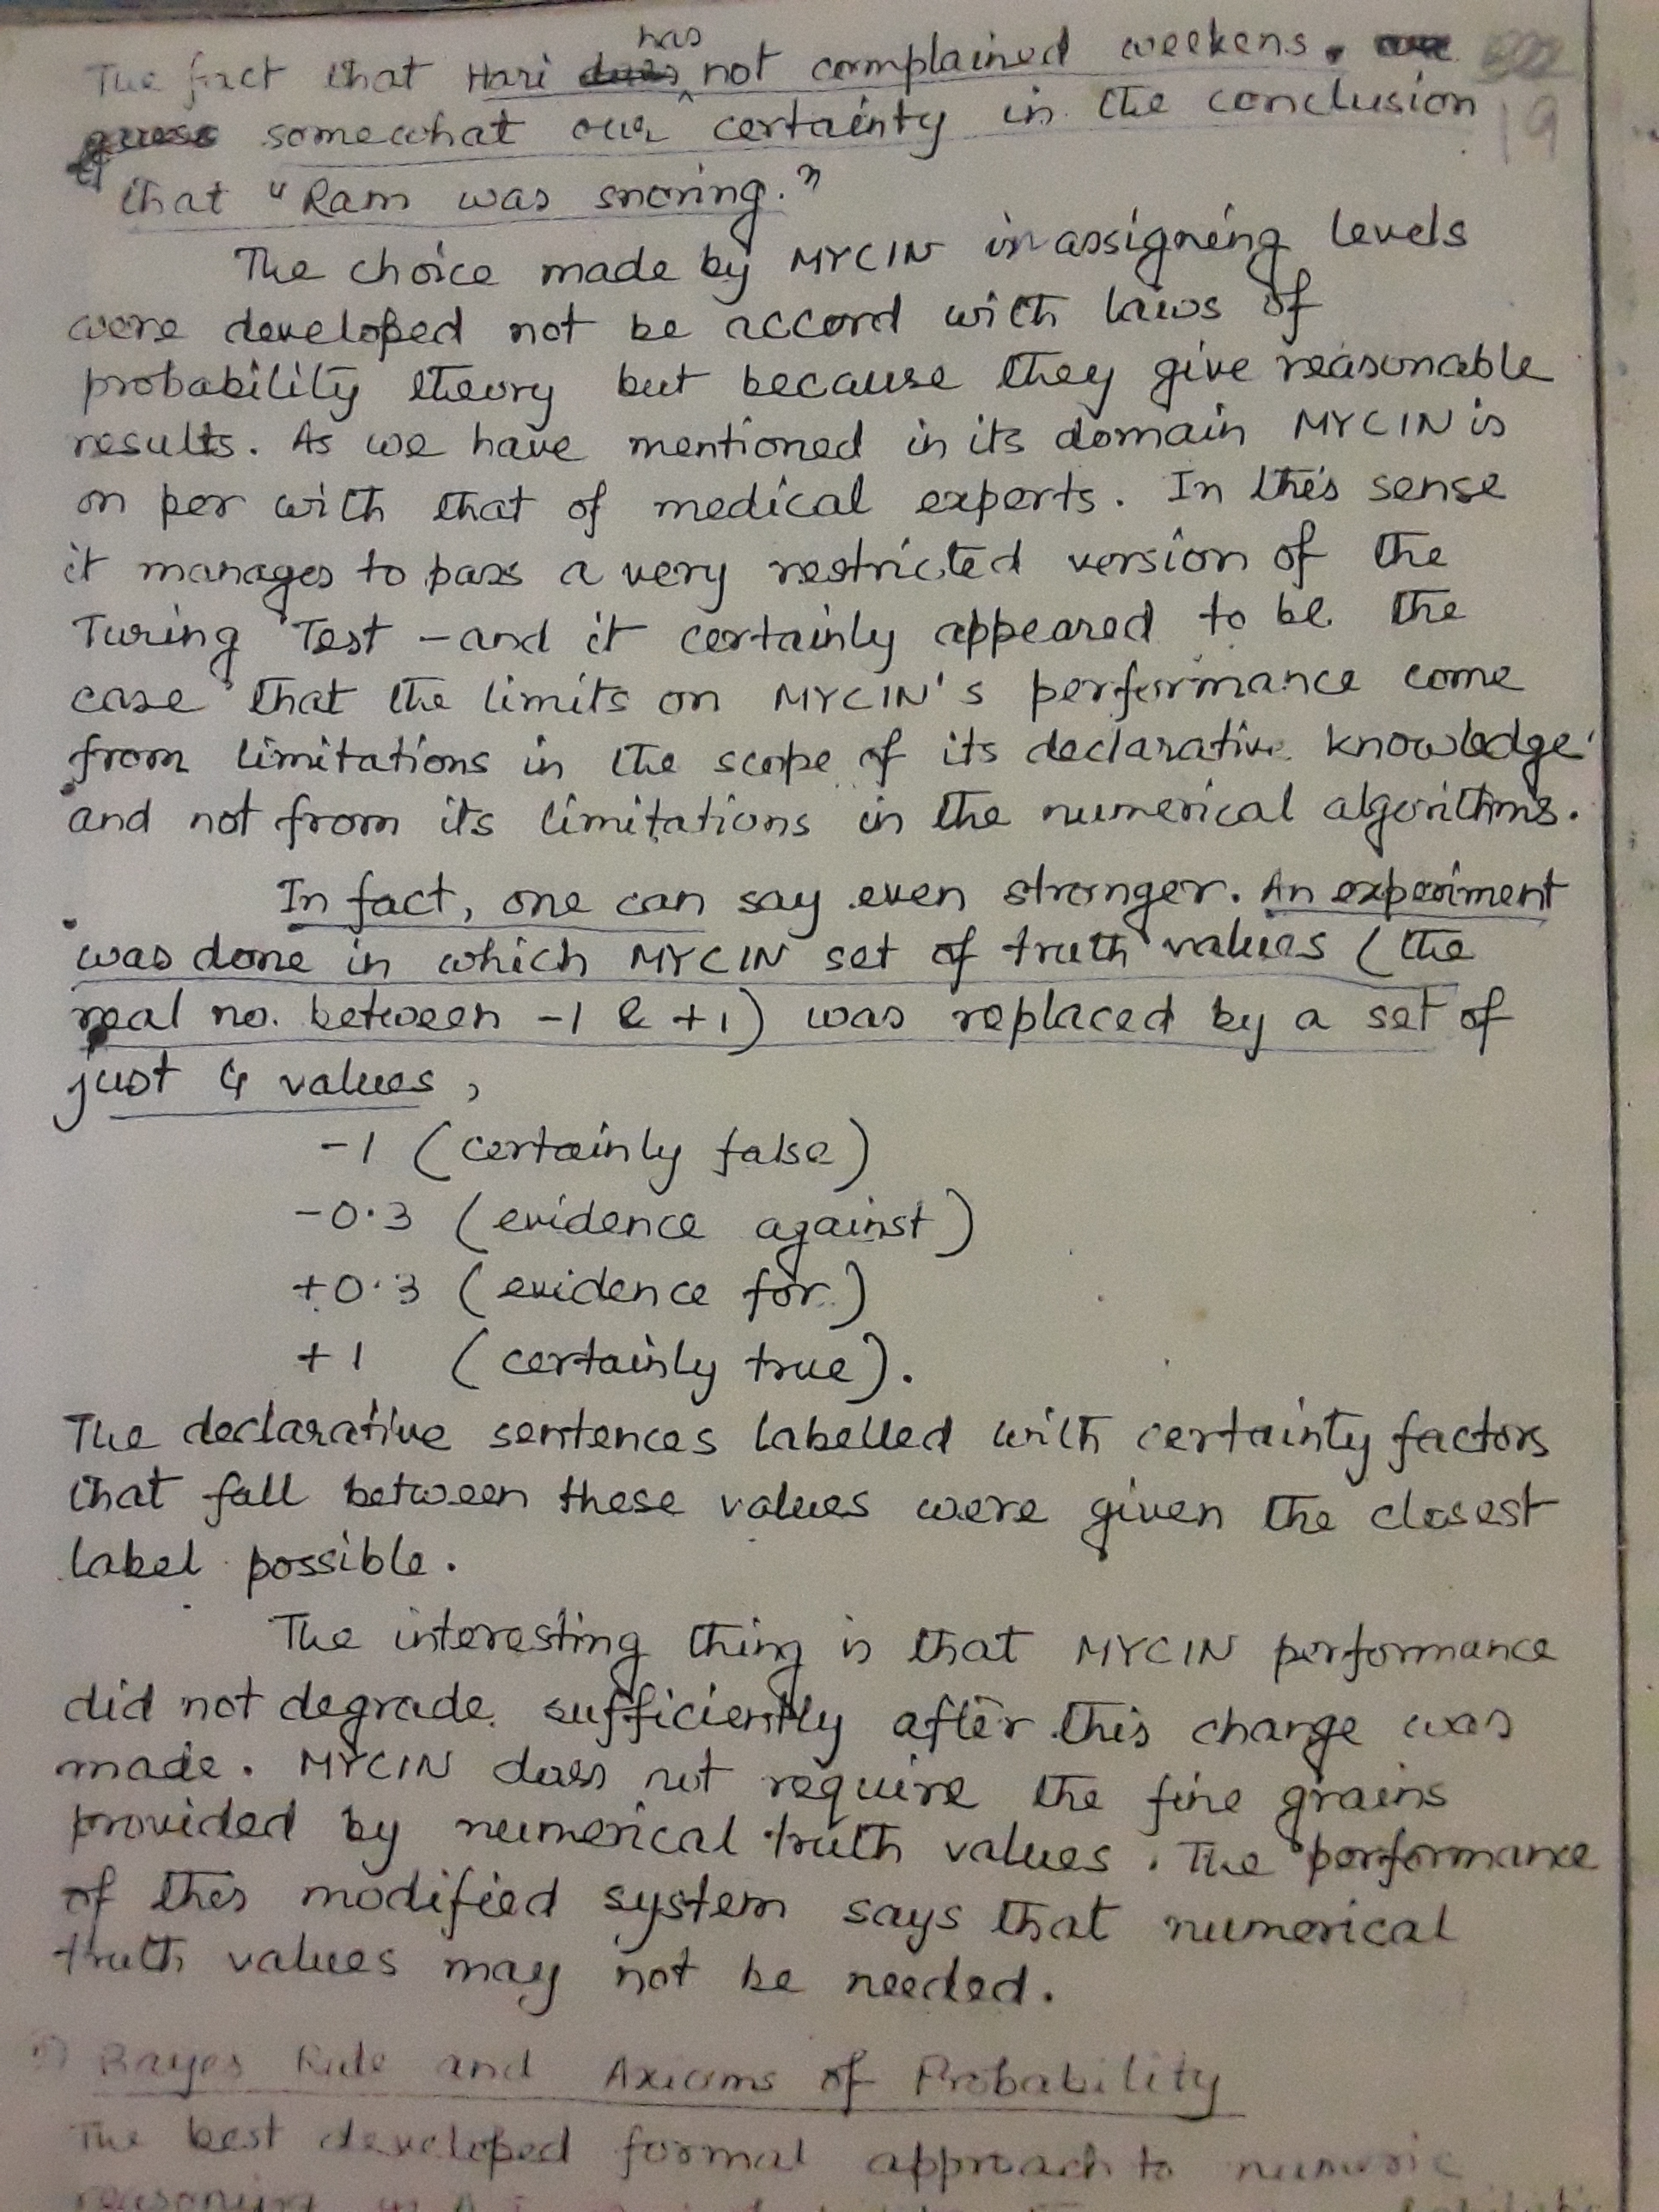 The fact that Hari has not complained weekens.
somewhat our certainty in the conclusion 19
that "Ram was snoring."
The choice made by MYCIN in assigning levels
were developed not be accord with laws of
probability theory but because they give reasonable
results. As we have mentioned in its domain MYCIN is
on per with that of medical experts. In this sense
it manages to pass a very restricted version of the
Turing Test - and it certainly appeared to be the
case that the limits on MYCIN's performance come
from limitations in the scope of its declarative knowledge
and not from its limitations in the numerical algorithms.
In fact, one can say even stronger. An experiment
was done in which MYCIN set of truth values (the
real no. between -1 & +1) was replaced by a set of
just 4 values,
-1 (certainly false)
-0.3 (evidence against)
+0.3 (evidence for)
+1 (certainly true).
The declarative sentences labelled with certainty factors
that fall between these values were given the closest
label possible.
The interesting thing is that MYCIN performance
did not degrade sufficiently after this change was
made. MYCIN does not require the fine grains
provided by numerical truth values. The performance
of this modified system says that numerical
truth values may not be needed.
Bayes Rule and Axioms of Probability
The best developed formal approach to numeric
reasoning